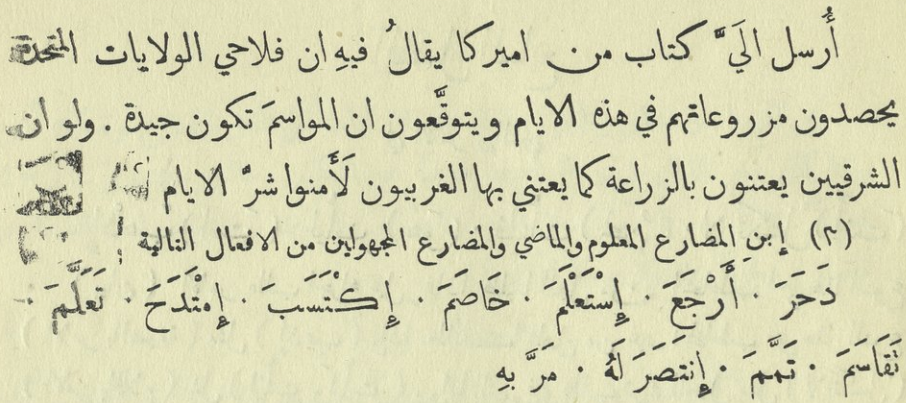 أُرسل الَيَّ كتاب من اميركا يقالُ فيهِ ان فلاحي الولايات المتحدة
يحصدون مزروعاتهم في هذه الايام ويتوقَّعون ان المواسمَ تكون جيدة . ولو ان
الشرقيين يعتنون بالزراعة كما يعتني بها الغربيون لَأَمنوا شرَّ الايام
(٢) إبنِ المضارع المعلوم والماضي والمضارع المجهولين من الافعال التالية :
دَحَرَ · أَرْجَعَ · إِسْتَعْلَمَ · خَاصَمَ · إِكْتَسَبَ · إِمْتَدَحَ · تَعَلَّمَ ·
تَقَاسَمَ · تَمَّمَ · إِنتَصَرَ لَهُ · مَرَّ بِهِ